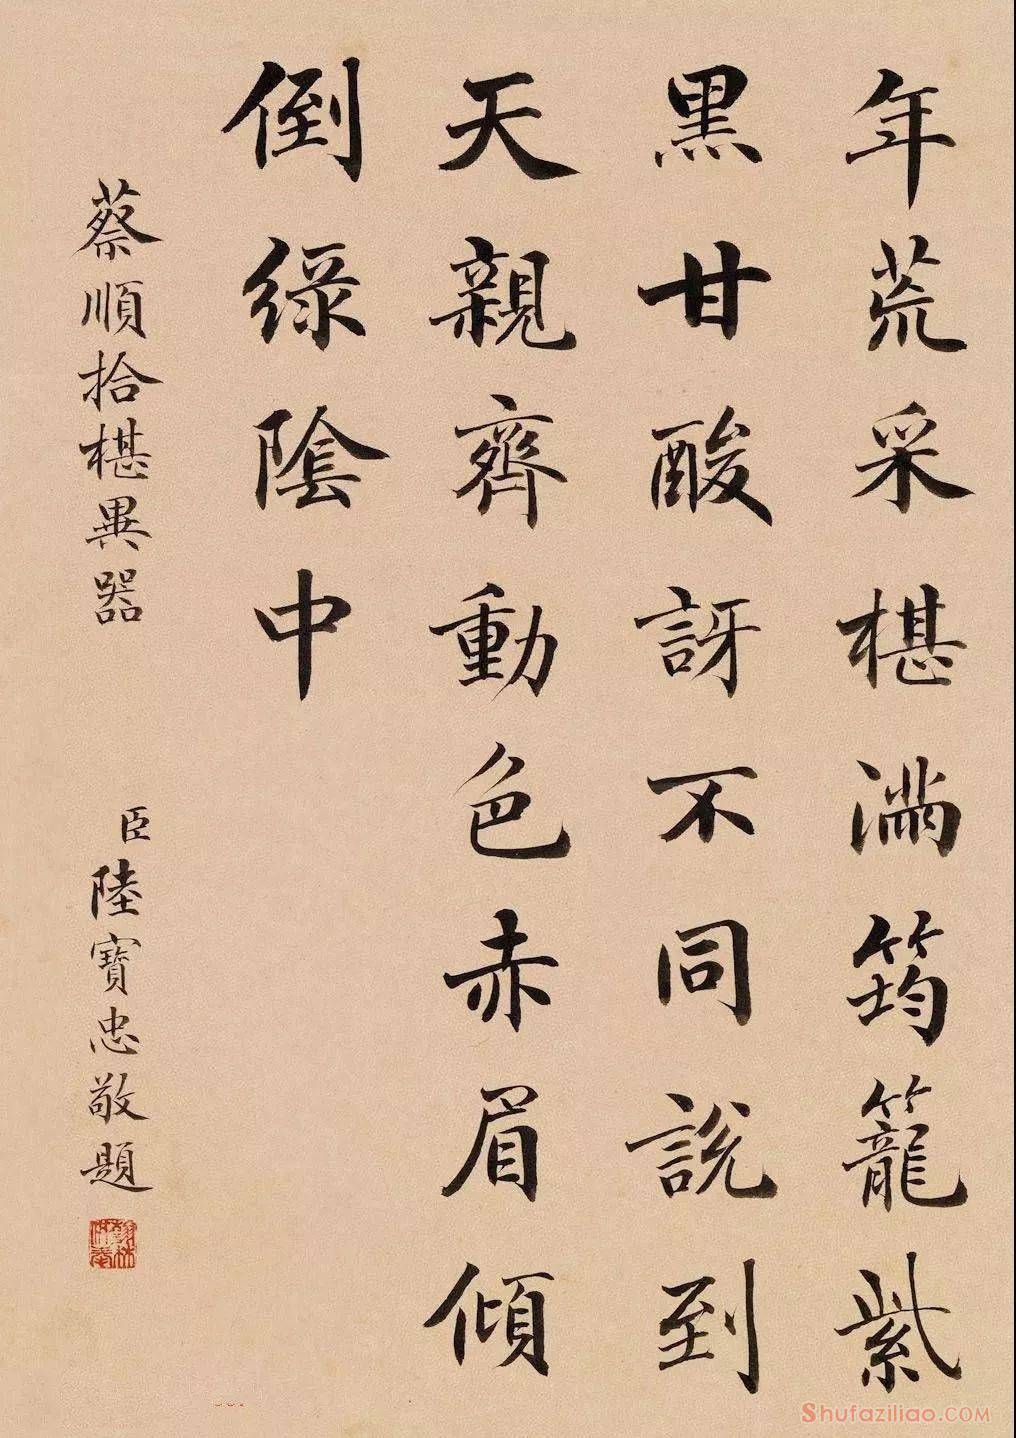 年荒采椹滿筠籠紫
黑甘酸訝不同說到
天親齊動色赤眉傾
倒綠陰中
蔡順拾椹異器
臣陸寶忠敬題
Shufaziliao.COM